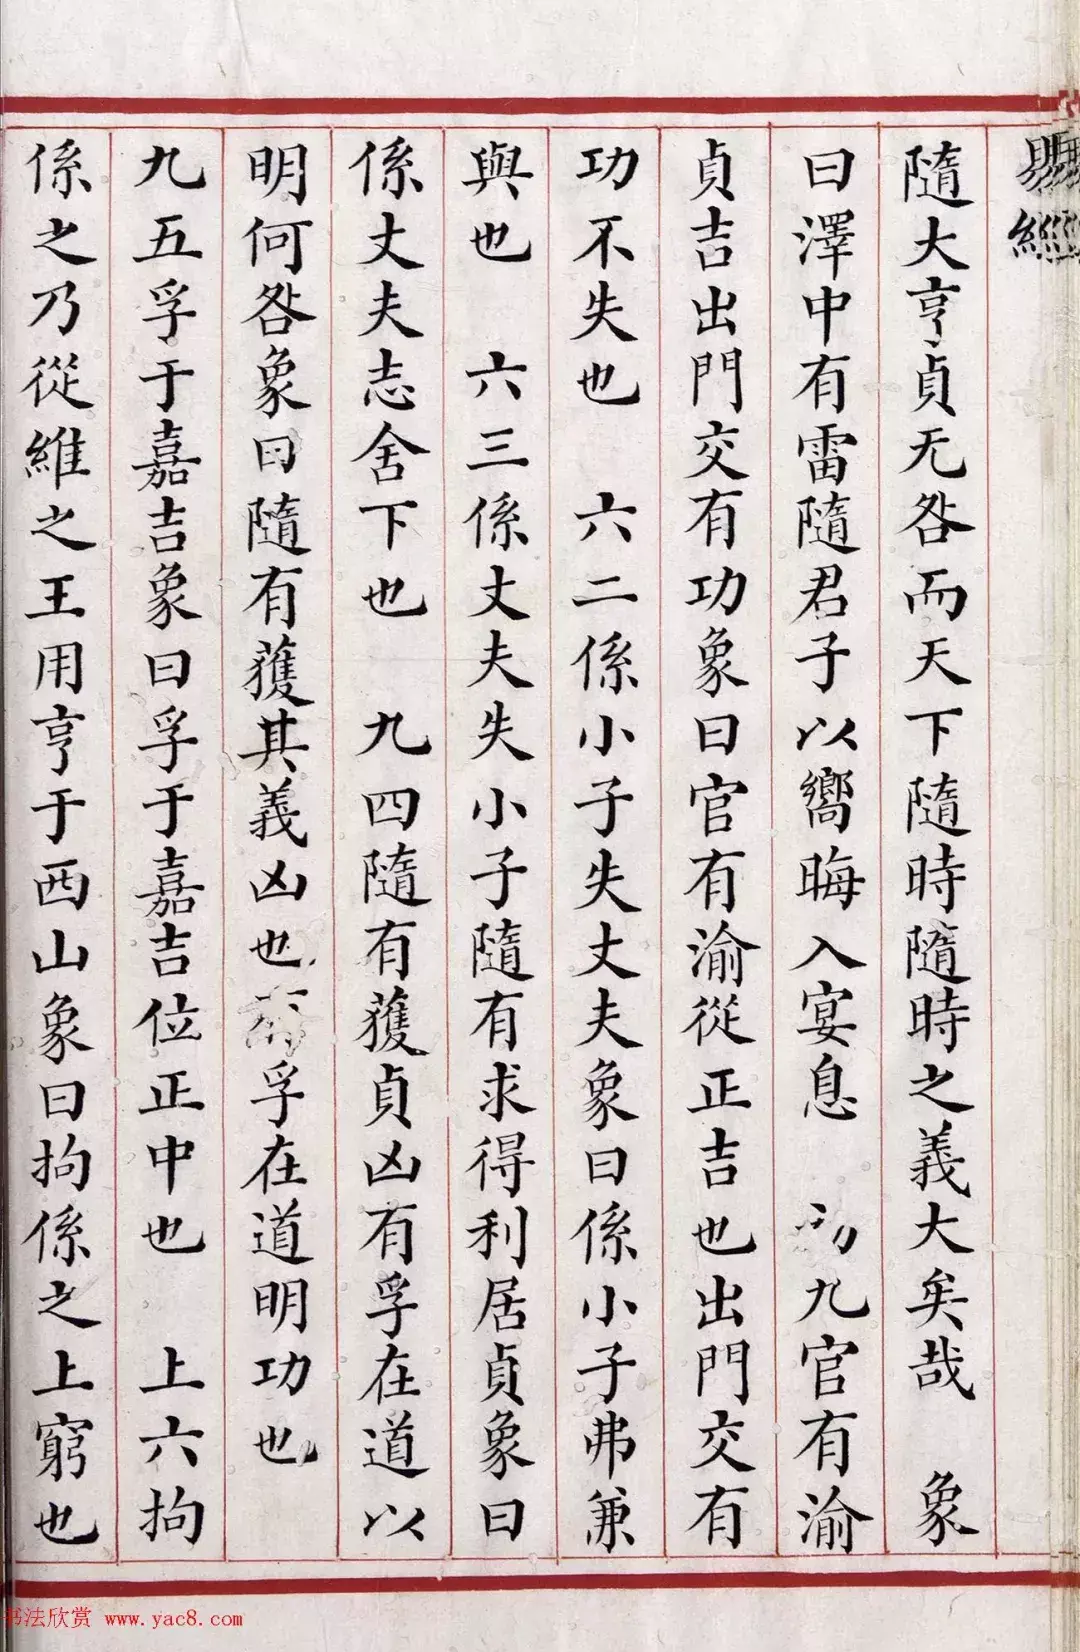 隨大亨貞无咎而天下隨時隨時之義大矣哉　象
曰澤中有雷隨君子以嚮晦入宴息　初九官有渝
貞吉出門交有功象曰官有渝從正吉也出門交有
功不失也　六二係小子失丈夫象曰係小子弗兼
與也　六三係丈夫失小子隨有求得利居貞象曰
係丈夫志舍下也　九四隨有獲貞凶有孚在道以
明何咎象曰隨有獲其義凶也孚在道明功也
九五孚于嘉吉象曰孚于嘉吉位正中也　上六拘
係之乃從維之王用亨于西山象曰拘係之上窮也
书法欣赏 www.yac8.com